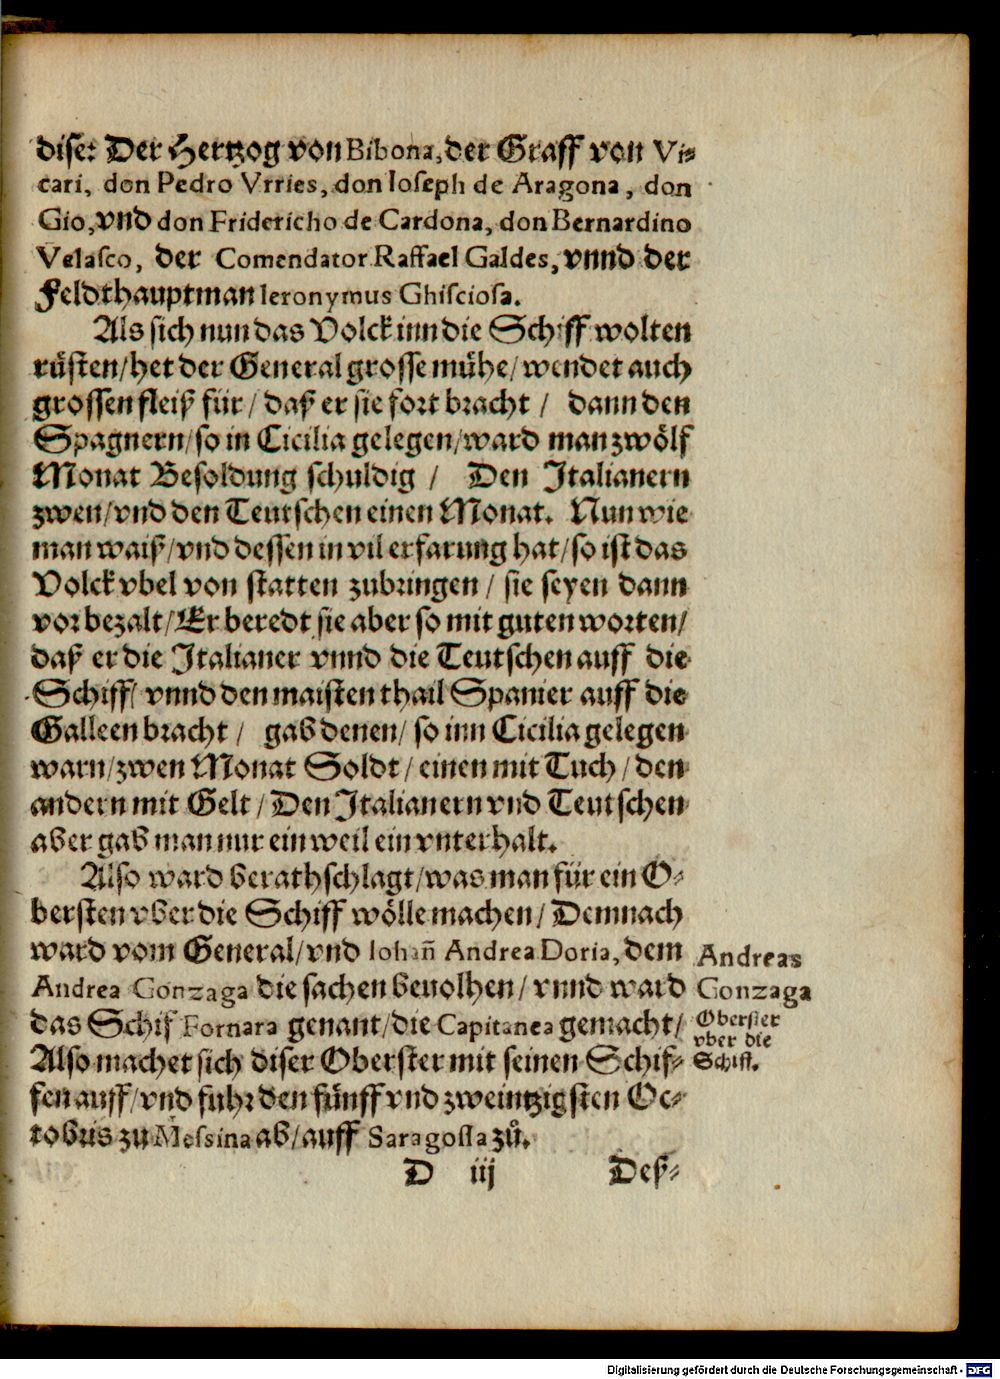 dise: Der Hertzog von Bibona, der Graff von Vi⸗
cari, don Pedro Vrries, don Ioseph de Aragona, don
Gio, vnd don Fridericho de Cardona, don Bernardino
Velasco, der Comendator Raffael Galdes, vnnd der
Feldthauptman Ieronymus Ghisciosa.
Als sich nun das Volck inn die Schiff wolten
rüsten/ het der General grosse mühe/ wendet auch
grossen fleiß für/ daß er sie fort bracht/ dann den
Spagnern/ so in Cicilia gelegen/ ward man zwölf
Monat Besoldung schuldig/ Den Italianern
zwen/ vnd den Teutschen einen Monat. Nun wie
man waiß/ vnd dessen in vil erfarung hat/ so ist das
Volck vbel von statten zubringen/ sie seyen dann
vor bezalt/ Er beredt sie aber so mit guten worten/
daß er die Italianer vnnd die Teutschen auff die
Schiff/ vnnd den maisten thail Spanier auff die
Galleen bracht/ gab denen/ so inn Cicilia gelegen
warn/ zwen Monat Soldt/ einen mit Tuch/ den
andern mit Gelt/ Den Italianern vnd Teutschen
aber gab man nur ein weil ein vnterhalt.
Also ward berathschlagt/ was man für ein O⸗
bersten vber die Schiff wölle machen/ Demnach
ward vom General/ vnd Iohañ Andrea Doria, dem
Andrea Gonzaga die sachen beuolhen/ vnnd ward
das Schif Fornara genant/ die Capitanea gemacht/
Also machet sich diser Oberster mit seinen Schif⸗
fen auff/ vnd fuhr den fünff vnd zweintzigsten Oc⸗
tobris zu Messina ab/ auff Saragossa zů.
Andreas
Gonzaga
Oberster
vber die
Schiff.
D iij Deß⸗
Digitalisierung gefördert durch die Deutsche Forschungsgemeinschaft - DFG